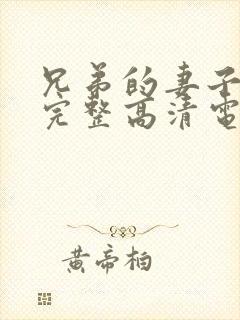 兄弟的妻子
完整高清電
黄帝柏